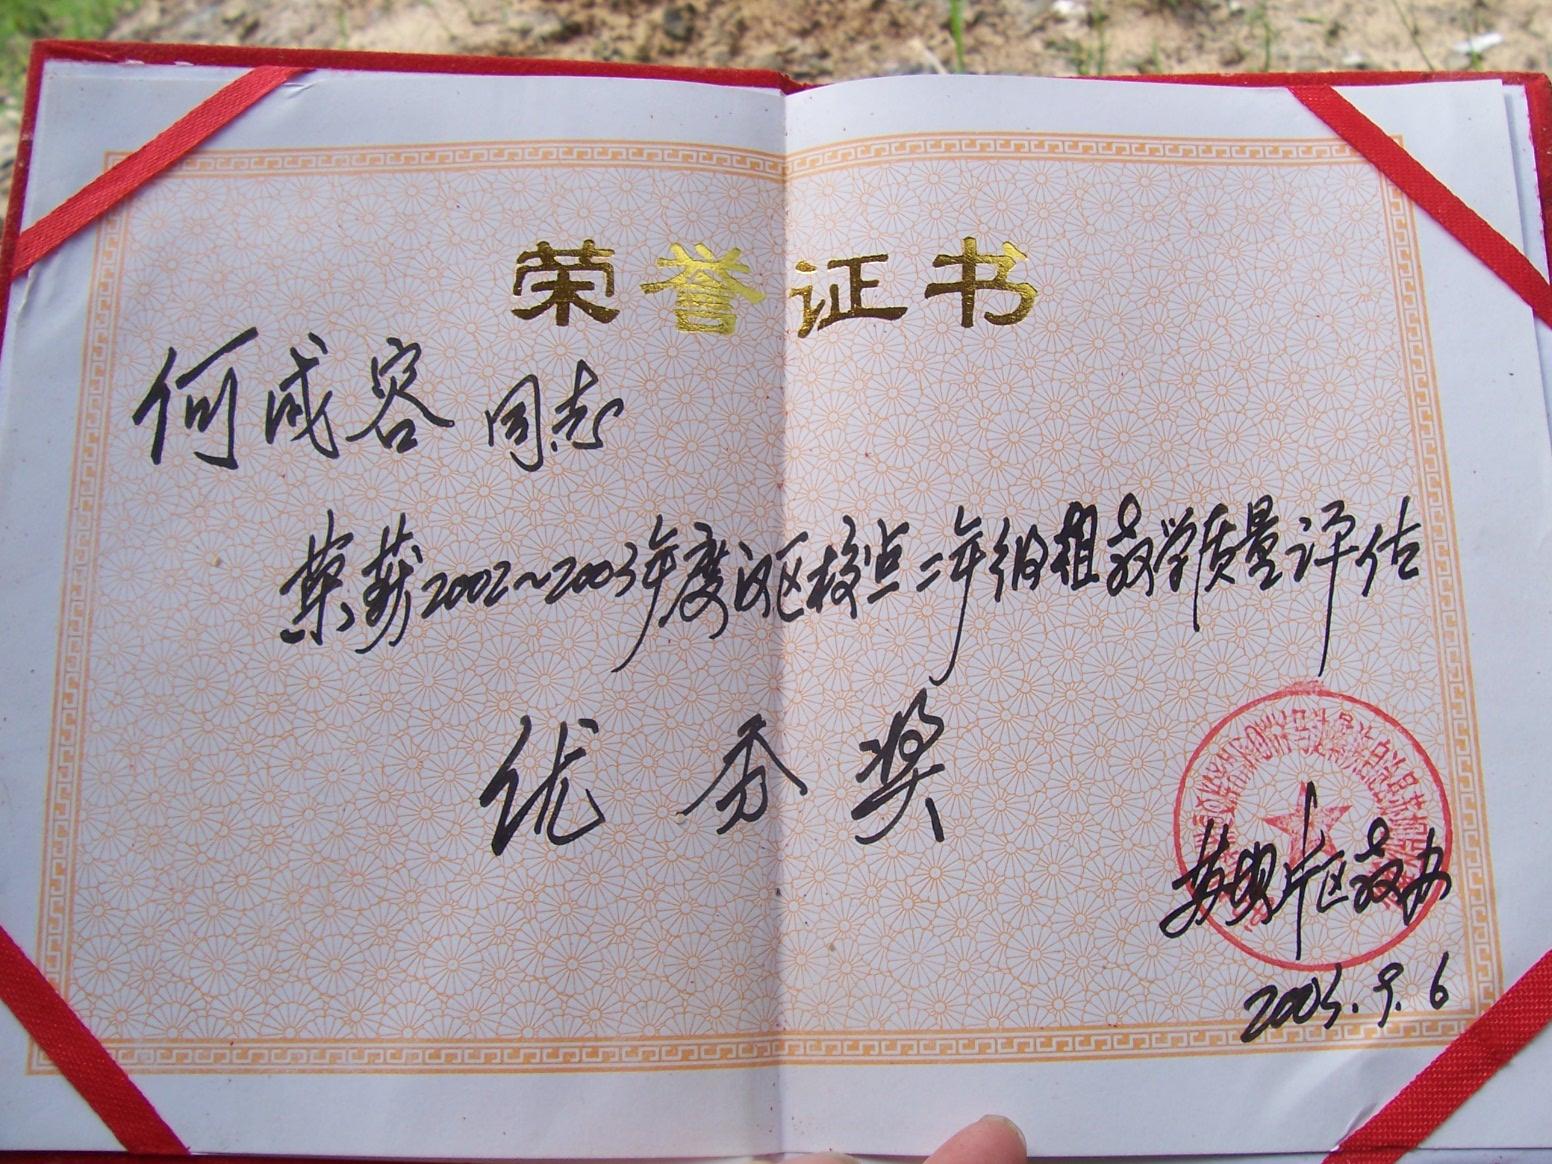 荣誉证书
何成容 同志
荣获2002~2003年度片区校点二年级组教学质量评估
优秀奖
片区教办
2003.9.6